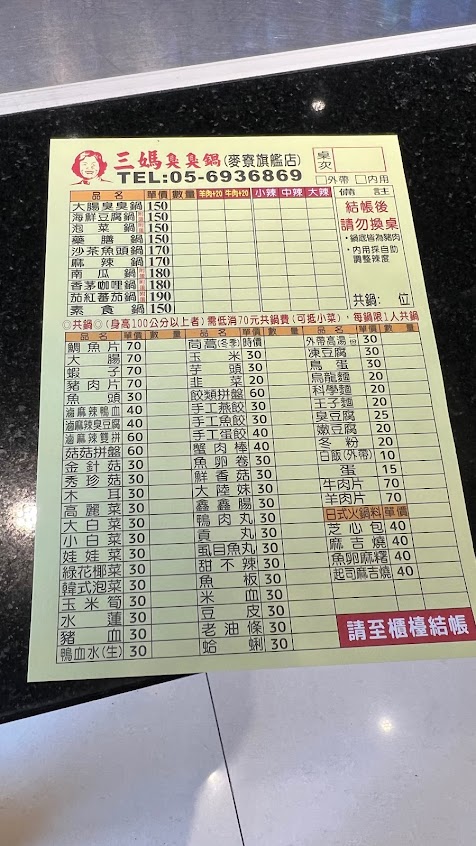 三媽臭臭鍋(麥寮旗艦店)
TEL:05-6936869
桌次
□外帶 □內用
品名 單價 數量 羊肉+20 牛肉+20 小辣 中辣 大辣 備註
大腸臭臭鍋 150
海鮮豆腐鍋 150
泡菜鍋 150
藥膳鍋 150
沙茶魚頭鍋 170
麻辣鍋 170
南瓜鍋 180
香茅咖哩鍋 180
茄紅蕃茄鍋 190
素食鍋 150
結帳後
請勿換桌
•鍋底皆為豬肉
•內用採自助
調整辣度
共鍋: 位
◎共鍋◎(身高100公分以上者)需低消70元共鍋費(可抵小菜),每鍋限1人共鍋
品名 單價 數量
鯛魚片 70
大腸 70
蝦子 70
豬肉片 70
魚頭 30
滷麻辣鴨血 40
滷麻辣臭豆腐 40
滷麻辣雙拼 60
菇菇拼盤 60
金針菇 30
秀珍菇 30
木耳 30
高麗菜 30
大白菜 30
小白菜 30
娃娃菜 30
綠花椰菜 30
韓式泡菜 30
玉米筍 30
水蓮 30
豬血 30
鴨血水(生) 30
品名 單價 數量
茼蒿(冬季) 時價
玉米 30
芋頭 30
韭菜 20
餃類拼盤 60
手工燕餃 30
手工魚餃 30
手工蛋餃 30
蟹肉棒 40
魚卵卷 30
鮮香菇 30
大陸妹 30
鑫鑫腸 30
鴨肉丸 30
貢丸 30
虱目魚丸 30
甜不辣 30
魚板 30
米血 30
豆皮 30
老油條 30
蛤蜊 30
品名 單價 數量
外帶高湯 30
凍豆腐 30
鳥蛋 30
烏龍麵 20
科學麵 20
王子麵 20
臭豆腐 25
嫩豆腐 20
冬粉 20
白飯(外帶) 10
蛋 15
牛肉片 70
羊肉片 70
日式火鍋料 單價
芝心包 40
麻吉燒 40
魚卵麻糬 40
起司麻吉燒 40
請至櫃檯結帳